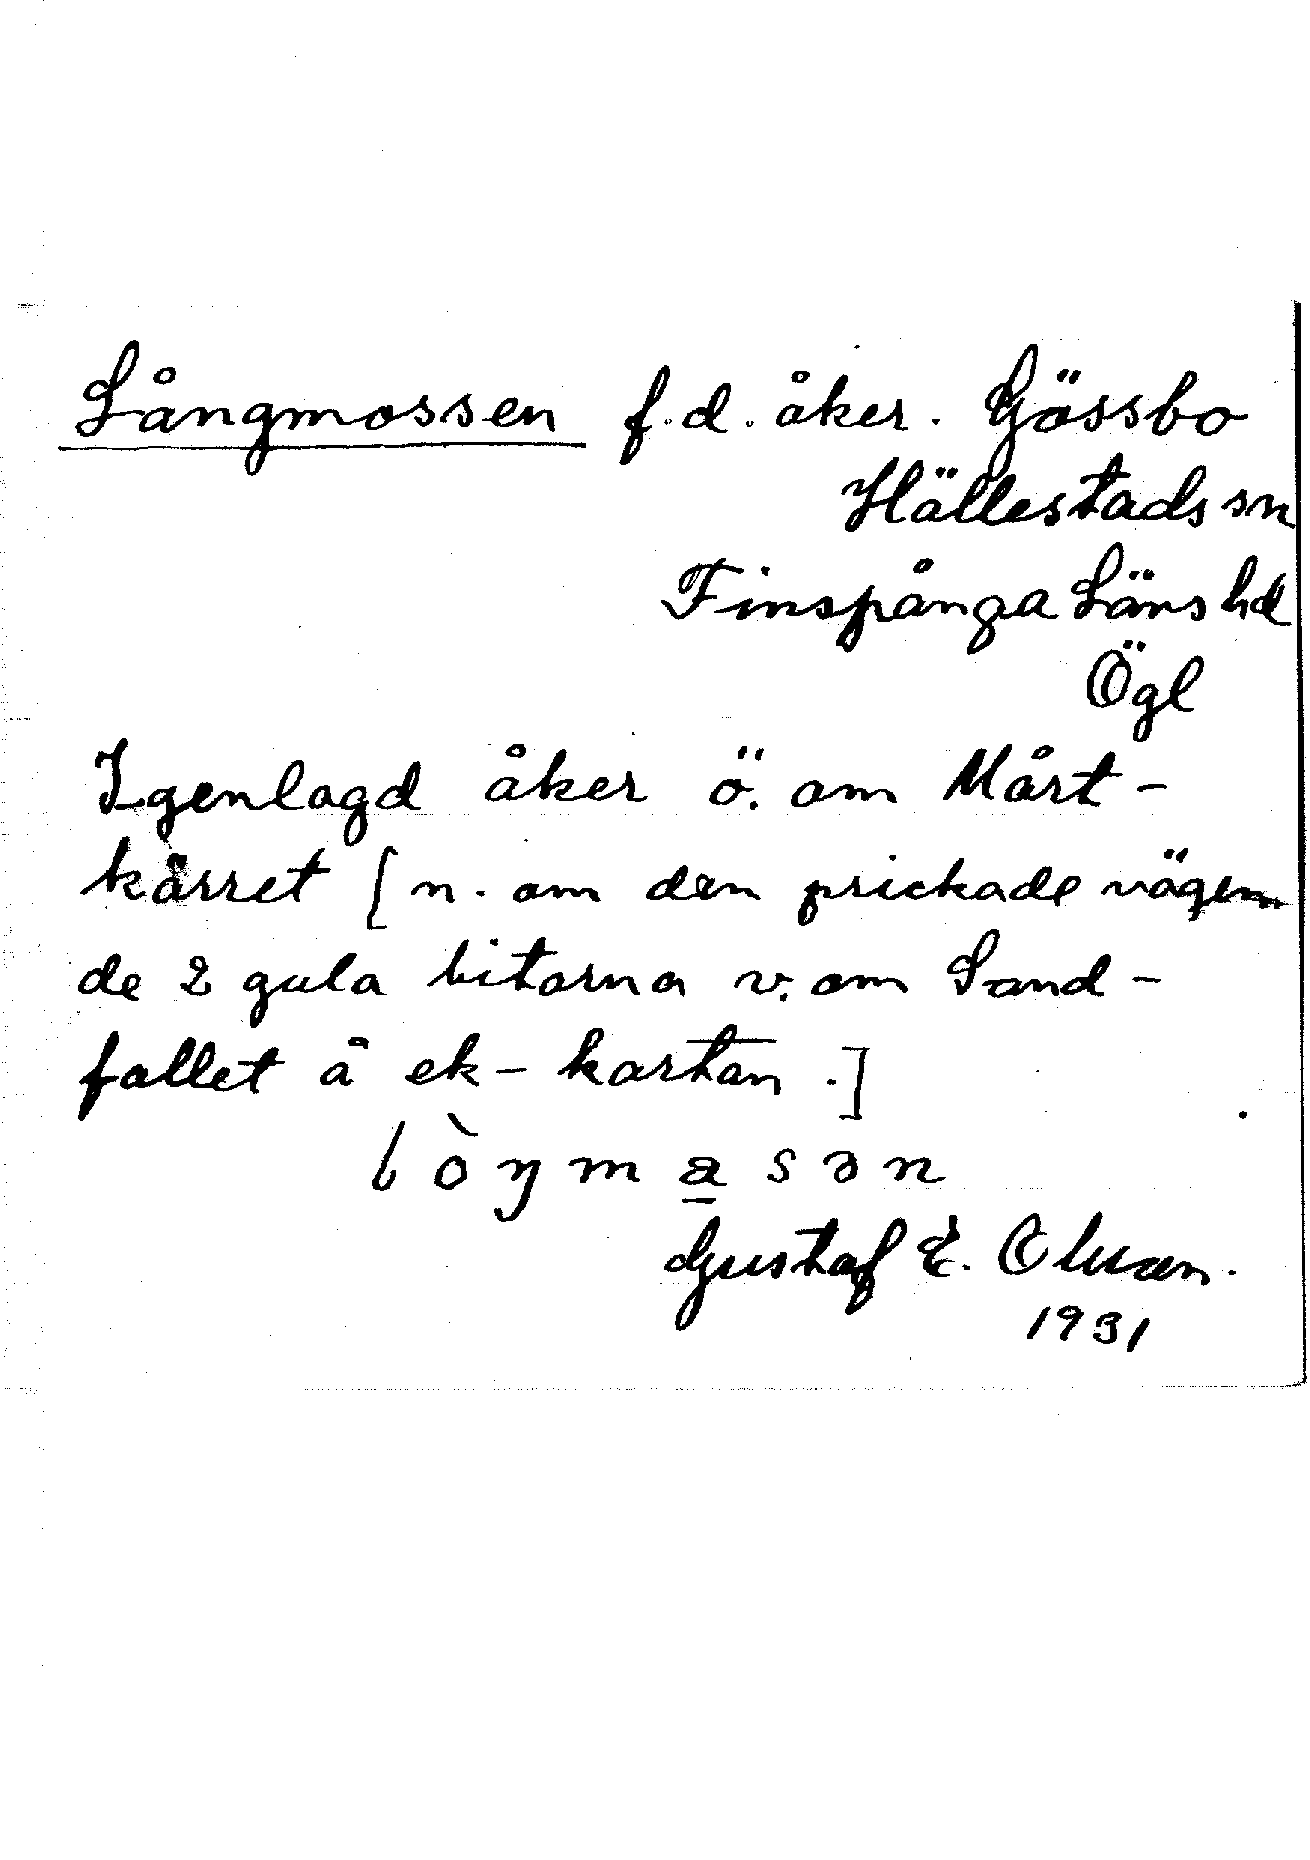 Långmossen f.d. åker. Gössbo
Hällestads sn
Finspånga Läns hd
Ögl
Igenlagd åker ö. om Mårt-
kärret [n. om den prickade vägen
de 2 gula bitarna v. om Sand-
fallet å ek-kartan.]
lòŋma̲sən
Gustaf E. Olsson.
1931